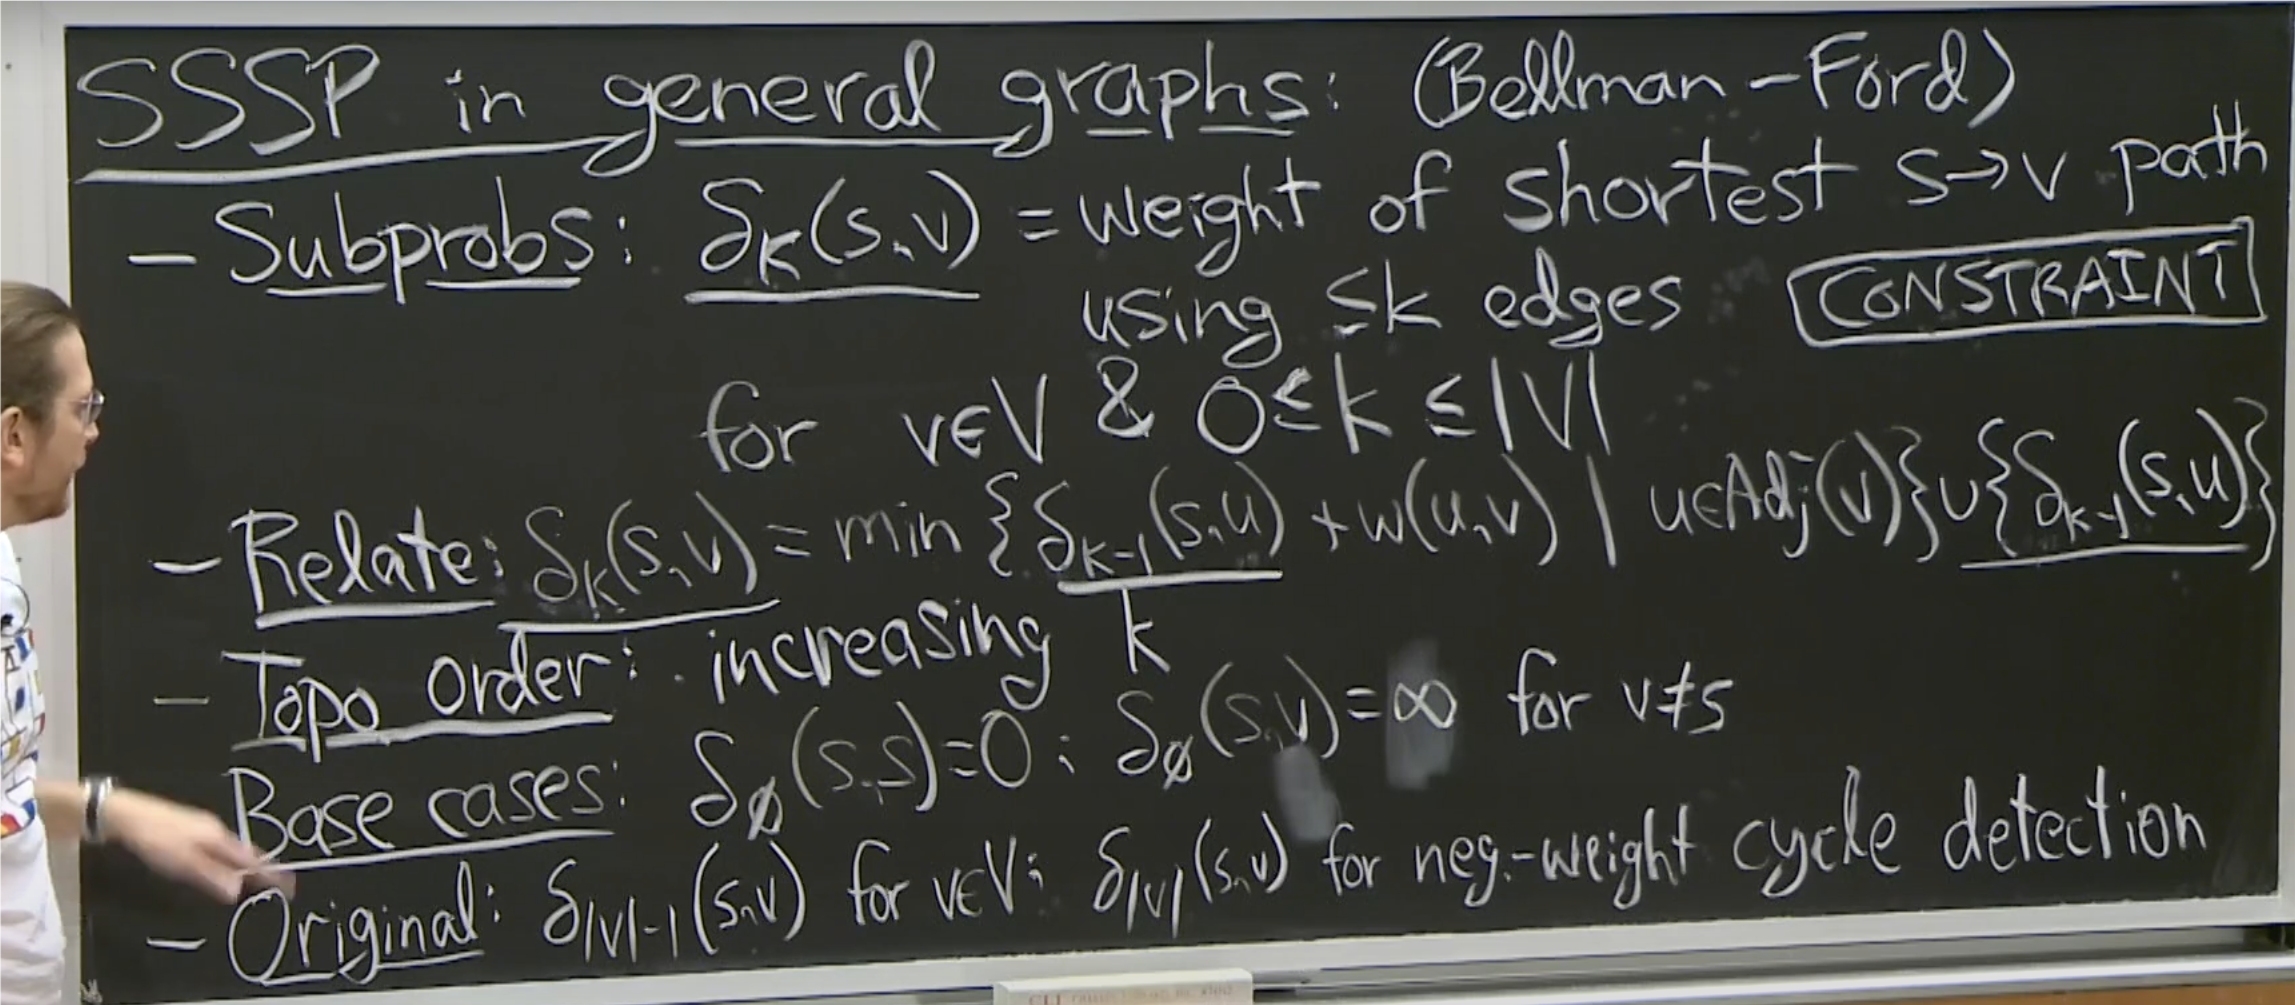 SSSP in general graphs: (Bellman-Ford)
- Subprobs: δₖ(s,v) = weight of shortest s→v path
using ≤k edges CONSTRAINT
for v∈V & 0≤k≤|V|
- Relate: δₖ(s,v) = min {δₖ₋₁(s,u) + w(u,v) | u∈Adj(v)}∪{δₖ₋₁(s,u)}
- Topo order: increasing k
Base cases: δ∅(s,s)=0; δ∅(s,v)=∞ for v≠s
- Original: δ|V|-1(s,v) for v∈V; δ|V|(s,v) for neg.-weight cycle detection